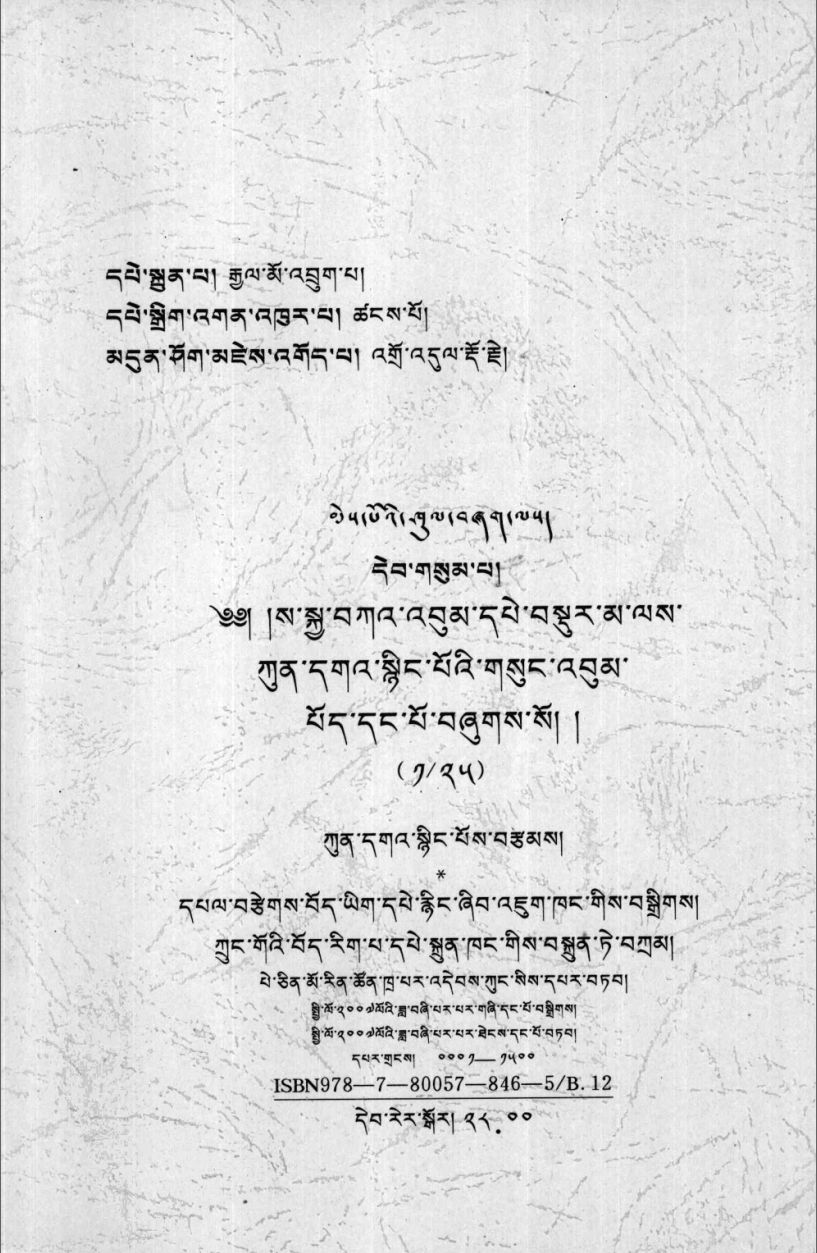 དཔེ་སྐྲུན་པ། རྒྱལ་མོ་འབྲུག་པ།
དཔེ་སྒྲིག་འགན་འཁུར་པ། ཚངས་པོ།
མདུན་ཤོག་མཛེས་འགོད་པ། འགྲོ་འདུལ་རྡོ་རྗེ།
དེབ་གསུམ་པ།
༄༅། །ས་སྐྱ་བཀའ་འབུམ་དཔེ་བསྡུར་མ་ལས་
ཀུན་དགའ་སྙིང་པོའི་གསུང་འབུམ་
པོད་དང་པོ་བཞུགས་སོ། །
(༡/༢༥)
ཀུན་དགའ་སྙིང་པོས་བརྩམས།
*
དཔལ་བརྩེགས་བོད་ཡིག་དཔེ་རྙིང་ཞིབ་འཇུག་ཁང་གིས་བསྒྲིགས།
ཀྲུང་གོའི་བོད་རིག་པ་དཔེ་སྐྲུན་ཁང་གིས་བསྐྲུན་ཏེ་བཀྲམ།
པེ་ཅིན་མོ་རིན་ཚོན་ཁྲ་པར་འདེབས་ཀུང་སིས་དཔར་བཏབ།
སྤྱི་ལོ་༢༠༠༧ལོའི་ཟླ་བཞི་པར་པར་གཞི་དང་པོ་བསྒྲིགས།
སྤྱི་ལོ་༢༠༠༧ལོའི་ཟླ་བཞི་པར་པར་ཐེངས་དང་པོ་བཏབ།
དཔར་གྲངས། ༠༠༠༡—༡༥༠༠
ISBN978—7—80057—846—5/B.12
དེབ་རེར་སྒོར། ༢༨.༠༠